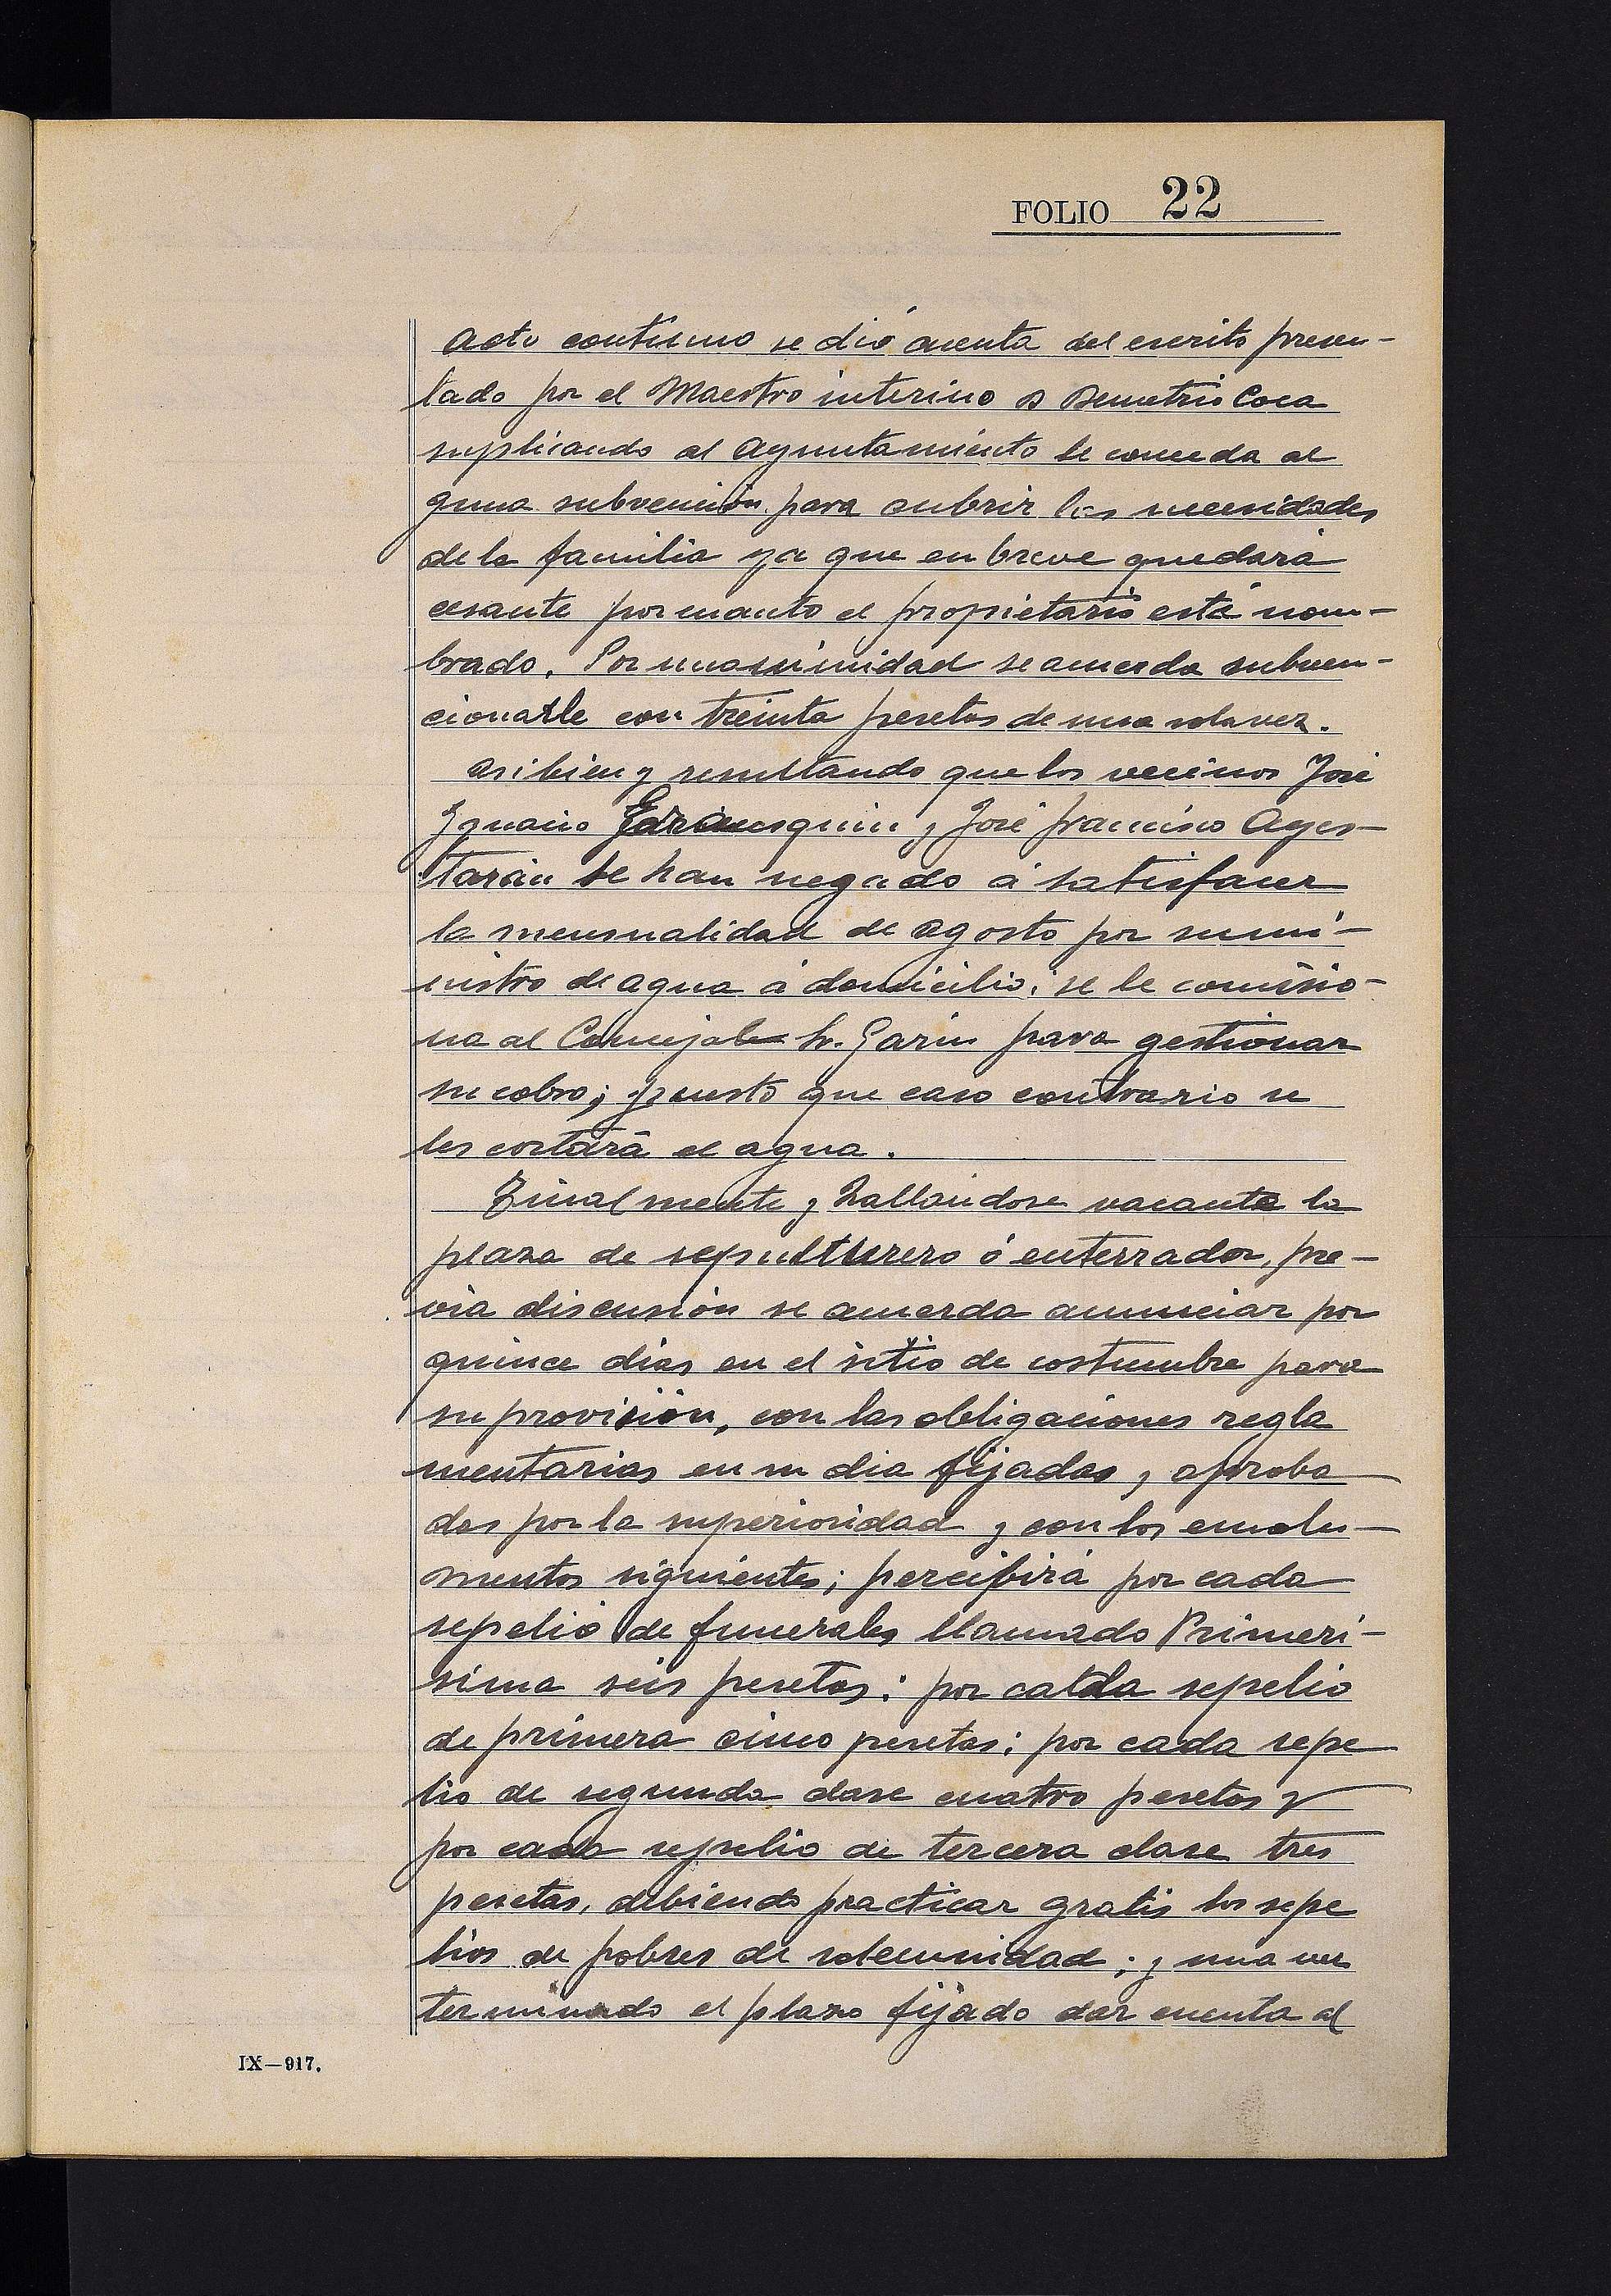 FOLIO 22
Acto contínuo se dió cuenta del escrito presen-
tado por el Maestro interino D Demetrio Coca
suplicando al Ayuntamiento le conceda al
guna subvención para cubrir las necesidades
de la familia ya que en breve quedará
cesante por cuanto el propietario está nom-
brado. Por unanimidad se acuerda subven-
cionarle con treinta pesetas de una sola vez.
Asi bien y resultando que los vecinos José
Ignacio y José Francisco Ayes-
tarán se han negado á satisfacer
la mensualidad de Agosto por sumi-
nistro de agua á domicilio; se le comisio-
na al Concejal Sr. Garin para gestionar
su cobro; puesto que caso contrario se
les cortará el agua.
Finalmente y hallándose vacante la
plaza de sepulturero ó enterrador, pre-
via discusión se acuerda anunciar por
quince dias en el sitio de costumbre para
su provisión, con las obligaciones regla
mentarias en su dia fijadas y aproba
das por la superioridad y con los emolu-
mentos siguientes; percibirá por cada
sepelio de funerales llamado Primeri-
sima seis pesetas; por cada sepelio
de primera cinco pesetas; por cada sepe
lio de segunda clase cuatro pesetas y
por cada sepelio de tercera clase tres
pesetas, debiendo practicar gratis los sepe
lios de pobres de solemnidad; y una vez
terminado el plazo fijado dar cuenta al
IX—917.